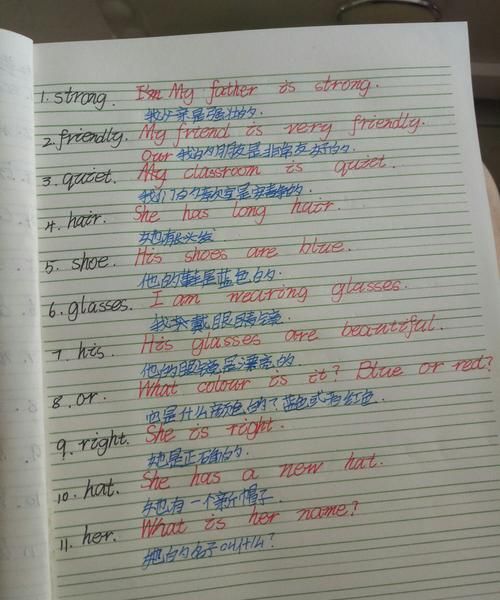 1. strong. I'm My father is strong.
我父亲是强壮的.
2. friendly. My friend is very friendly.
Our 我的朋友是非常友好的.
3. quiet. My classroom is quiet.
我们的教室是安静的.
4. hair. She has long hair.
她有长头发
5. shoe. His shoes are blue.
他的鞋是蓝色的.
6. glasses. I am wearing glasses.
我在戴眼睛镜.
7. his. His glasses are beautiful.
他的眼镜是漂亮的.
8. or. What colour is it? Blue or red?
它是什么颜色的? 蓝色或者红色.
9. right. She is right.
她是正确的.
10. hat. She has a new hat.
她有一个新帽子.
11. her. What is her name?
她的名子叫什么?